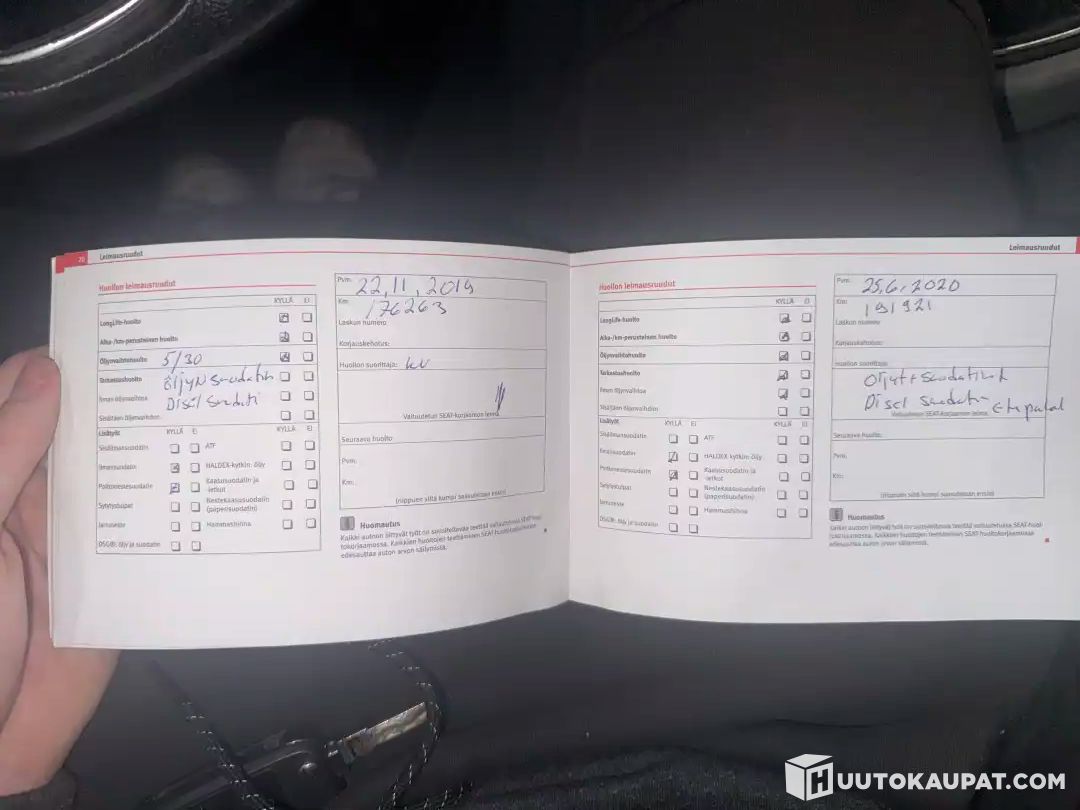 20 Leimausruudut
Huollon leimausruudut
KYLLÄ EI
LongLife-huolto
Aika-/km-perusteinen huolto
Öljynvaihtohuolto 5/30
Tarkastushuolto
Ilman öljynvaihtoa
Sisältäen öljynvaihdon
Lisätyöt KYLLÄ EI KYLLÄ EI
Sisäilmansuodatin ATF
Ilmansuodatin HALDEX-kytkin: öljy
Polttoainesuodatin Kaasusuodatin ja -letkut
Sytytystulpat Nestekaasusuodatin (paperisuodatin)
Jarruneste Hammashihna
DSG®: öljy ja suodatin
Pvm: 22.11.2019
Km: 176263
Laskun numero
Korjauskehotus:
Huollon suorittaja:
Valtuutetun SEAT-korjaamon leima
Seuraava huolto
Pvm:
Km:
(riippuen siitä kumpi saavutetaan ensin)
Huomautus
Kaikki autoon liittyvät työt on suositeltavaa teettää valtuutetussa SEAT-huol-
tokorjaamossa. Kaikkien huoltojen teettäminen SEAT-huoltokorjaamossa
edesauttaa auton arvon säilymistä.
Leimausruudut
Huollon leimausruudut
KYLLÄ EI
LongLife-huolto
Aika-/km-perusteinen huolto
Öljynvaihtohuolto
Tarkastushuolto
Ilman öljynvaihtoa
Sisältäen öljynvaihdon
Lisätyöt KYLLÄ EI KYLLÄ EI
Sisäilmansuodatin ATF
Ilmansuodatin HALDEX-kytkin: öljy
Polttoainesuodatin Kaasusuodatin ja -letkut
Sytytystulpat Nestekaasusuodatin (paperisuodatin)
Jarruneste Hammashihna
DSG®: öljy ja suodatin
Pvm: 25.6.2020
Km: 191921
Laskun numero
Korjauskehotus:
Huollon suorittaja:
Valtuutetun SEAT-korjaamon leima
Seuraava huolto:
Pvm:
Km:
(riippuen siitä kumpi saavutetaan ensin)
Huomautus
Kaikki autoon liittyvät työt on suositeltavaa teettää valtuutetussa SEAT-huol-
tokorjaamossa. Kaikkien huoltojen teettäminen SEAT-huoltokorjaamossa
edesauttaa auton arvon säilymistä.
HUUTOKAUPAT.COM